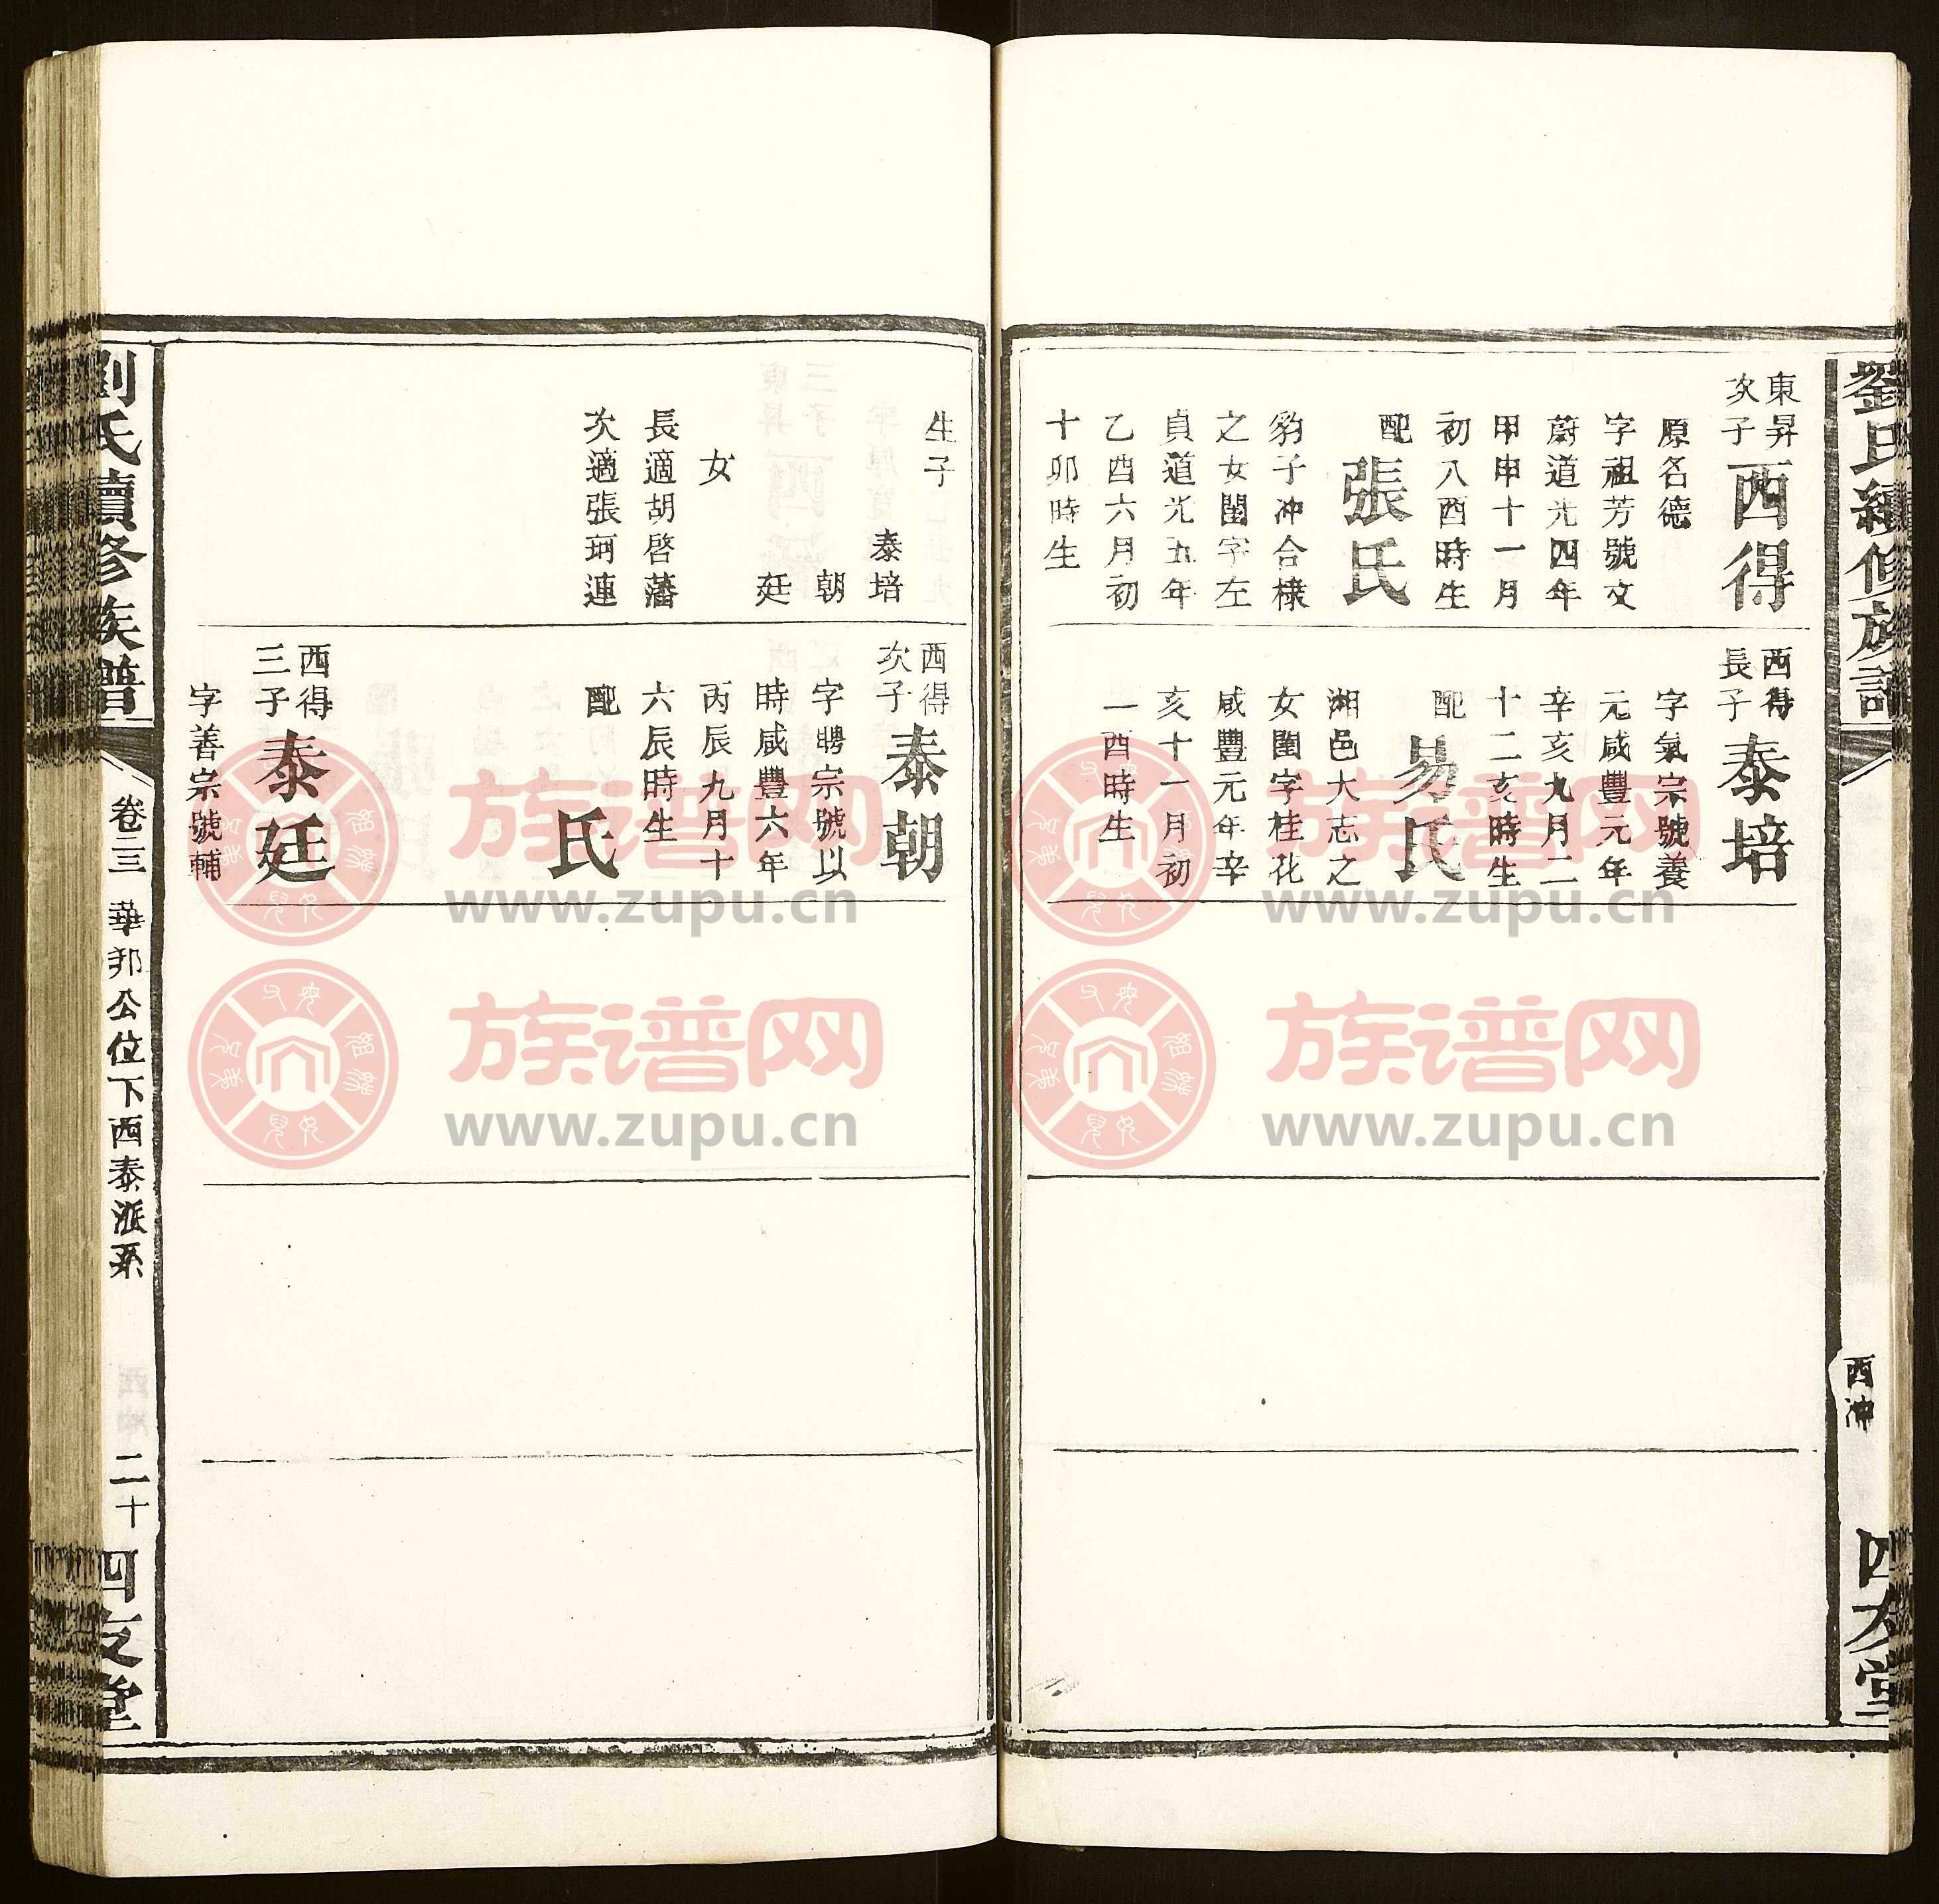 劉氏續修族譜
西冲
四友堂
東昇
次子
西得
原名德
字祖芳號文
蔚道光四年
甲申十一月
初八酉時生
配
張氏
豹子冲合樣
之女閨字左
貞道光五年
乙酉六月初
十卯時生
西得
長子
泰培
字氣宗號養
元咸豐元年
辛亥九月二
十二亥時生
配
易氏
湘邑大志之
女閨字桂花
咸豐元年辛
亥十一月初
一酉時生
生子
泰培
朝
廷
女
長適胡啓藩
次適張珂連
西得
次子
泰朝
字聘宗號以
時咸豐六年
丙辰九月十
六辰時生
配
氏
西得
三子
泰廷
字善宗號輔
劉氏續修族譜
卷三
華邦公位下西泰派系
二十
四友堂
族谱网
www.zupu.cn
族谱网
www.zupu.cn
族谱网
www.zupu.cn
族谱网
www.zupu.cn